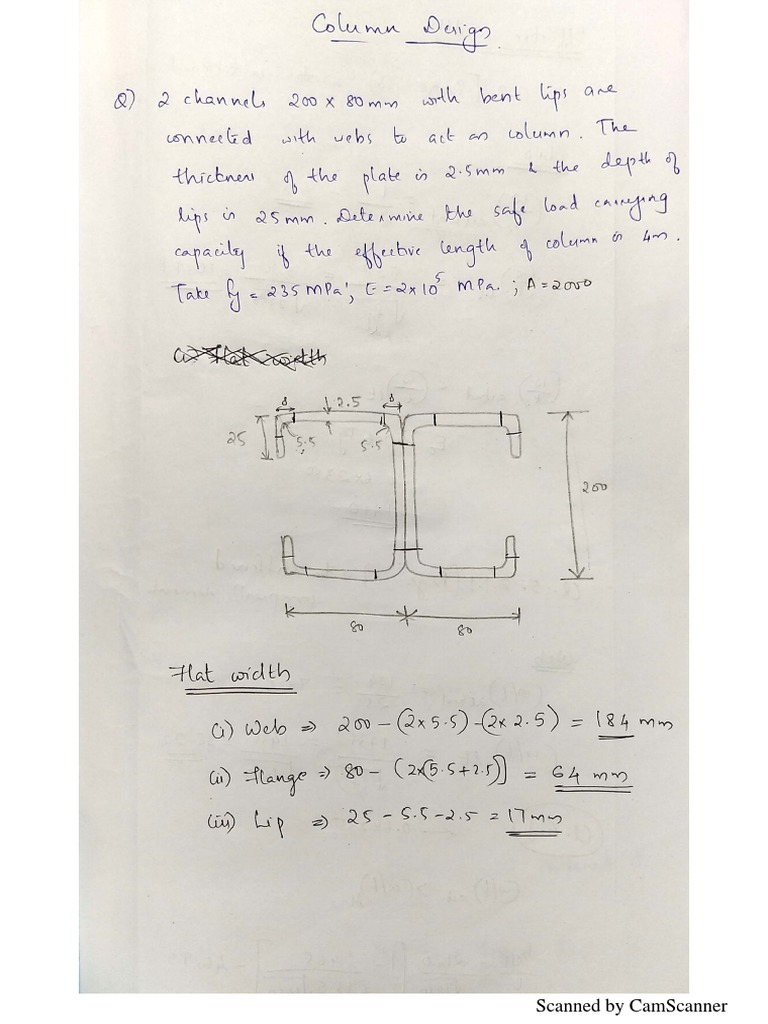 Column Design
Q) 2 channels 200 x 80mm with bent lips are
connected with webs to act as column. The
thickness of the plate is 2.5mm & the depth of
lips is 25mm. Determine the safe load carrying
capacity if the effective length of column is 4m.
Take fy = 235 MPa; E = 2 x 10⁵ MPa. ; A = 2000
(i) Flat width
8 2.5 8
25 5.5 5.5
200
80 80
Flat width
(i) Web ⇒ 200 - (2 x 5.5) - (2 x 2.5) = 184 mm
(ii) Flange ⇒ 80 - (2x(5.5+2.5)] = 64 mm
(iii) Lip ⇒ 25 - 5.5 - 2.5 = 17 mm
Scanned by CamScanner